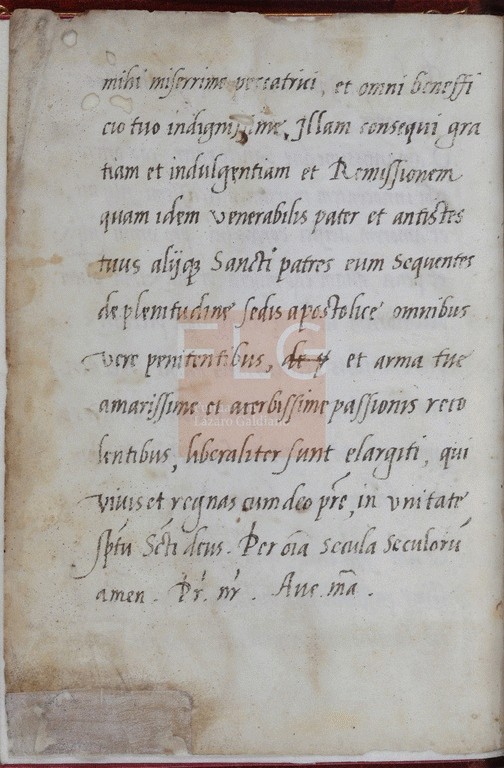 mihi miserrime peccatrici, et omni beneffi
cio tuo indignissime, Illam consequi gra
tiam et indulgentiam et Remissionem
quam idem venerabilis pater et antistes
tuus alijqz Sancti patres eum Sequentes
de plenitudine sedis apostolice omnibus
vere penitentibus, et arma tue
amarissime et acerbissime passionis reco
lentibus, liberaliter sunt elargiti, qui
viuis et regnas cum deo pr̃e, in vnitate
sp̃tu Sc̃ti deus. Per oĩa Secula Seculorũ
amen. Pr̃. nr̃. Aue. mã.
FLG
Lázaro Galdiano